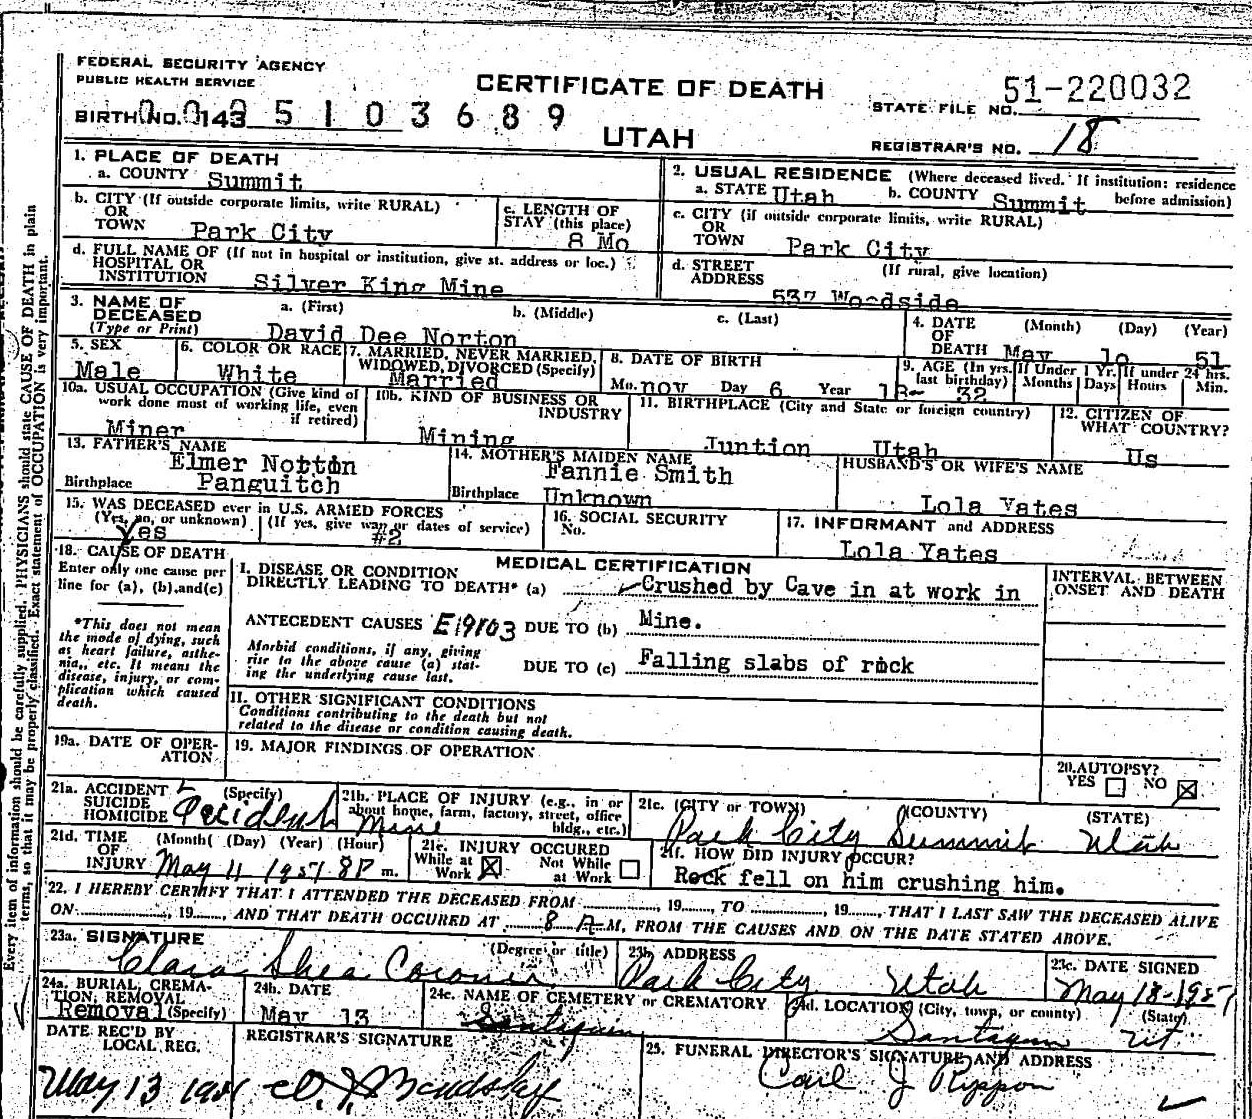 FEDERAL SECURITY AGENCY
PUBLIC HEALTH SERVICE
CERTIFICATE OF DEATH
STATE FILE NO. 51-220032
BIRTH NO. 143 5 1 0 3 6 8 9
UTAH
REGISTRAR'S NO. 18
1. PLACE OF DEATH
a. COUNTY Summit
2. USUAL RESIDENCE (Where deceased lived. If institution: residence before admission)
a. STATE Utah b. COUNTY Summit
b. CITY (If outside corporate limits, write RURAL) OR TOWN Park City
c. LENGTH OF STAY (this place) 8 Mo
c. CITY (if outside corporate limits, write RURAL) OR TOWN Park City
d. FULL NAME OF (If not in hospital or institution, give st. address or loc.) HOSPITAL OR INSTITUTION Silver King Mine
d. STREET ADDRESS (If rural, give location) 537 Woodside
3. NAME OF DECEASED (Type or Print) a. (First) b. (Middle) c. (Last)
David Dee Norton
4. DATE OF DEATH (Month) (Day) (Year)
May 10 51
5. SEX Male
6. COLOR OR RACE White
7. MARRIED, NEVER MARRIED, WIDOWED, DIVORCED (Specify) Married
8. DATE OF BIRTH
Mo. nov Day 6 Year
9. AGE (In yrs. last birthday) 32
If Under 1 Yr. Months Days
If under 24 hrs. Hours Min.
10a. USUAL OCCUPATION (Give kind of work done most of working life, even if retired) Miner
10b. KIND OF BUSINESS OR INDUSTRY Mining
11. BIRTHPLACE (City and State or foreign country) Juntion Utah
12. CITIZEN OF WHAT COUNTRY? Us
13. FATHER'S NAME Elmer Notton
Birthplace Panguitch
14. MOTHER'S MAIDEN NAME Fannie Smith
Birthplace Unknown
HUSBAND'S OR WIFE'S NAME Lola Yates
15. WAS DECEASED ever in U.S. ARMED FORCES
(Yes, no, or unknown) Yes (If yes, give war or dates of service) #2
16. SOCIAL SECURITY No.
17. INFORMANT and ADDRESS Lola Yates
18. CAUSE OF DEATH
Enter only one cause per line for (a), (b), and (c)
*This does not mean the mode of dying, such as heart failure, asthenia, etc. It means the disease, injury, or complication which caused death.
MEDICAL CERTIFICATION
INTERVAL BETWEEN ONSET AND DEATH
I. DISEASE OR CONDITION DIRECTLY LEADING TO DEATH* (a) Crushed by Cave in at work in
ANTECEDENT CAUSES E19103 DUE TO (b) Mine.
Morbid conditions, if any, giving rise to the above cause (a) stating the underlying cause last.
DUE TO (c) Falling slabs of rock
II. OTHER SIGNIFICANT CONDITIONS
Conditions contributing to the death but not related to the disease or condition causing death.
19a. DATE OF OPERATION
19. MAJOR FINDINGS OF OPERATION
20. AUTOPSY?
YES ☐ NO ☒
21a. ACCIDENT SUICIDE HOMICIDE (Specify) Accident
21b. PLACE OF INJURY (e.g., in or about home, farm, factory, street, office bldg., etc.) Mine
21c. (CITY or TOWN) (COUNTY) (STATE)
Park City Summit Utah
21d. TIME OF INJURY (Month) (Day) (Year) (Hour)
May 11 1951 8P m.
21e. INJURY OCCURED
While at Work ☒ Not While at Work ☐
21f. HOW DID INJURY OCCUR?
Rock fell on him crushing him.
22. I HEREBY CERTIFY THAT I ATTENDED THE DECEASED FROM ............, 19......, TO ............, 19......, THAT I LAST SAW THE DECEASED ALIVE
ON ............, 19......, AND THAT DEATH OCCURED AT 8 A M, FROM THE CAUSES AND ON THE DATE STATED ABOVE.
23a. SIGNATURE (Degree or title)
Clara Shea Coroner
23b. ADDRESS
Park City Utah
23c. DATE SIGNED
May 18-1951
24a. BURIAL, CREMATION, REMOVAL (Specify) Removal
24b. DATE May 13
24c. NAME OF CEMETERY or CREMATORY Santaquin
24d. LOCATION (City, town, or county) (State)
Santaquin Ut
DATE REC'D BY LOCAL REG.
May 13 1951
REGISTRAR'S SIGNATURE
25. FUNERAL DIRECTOR'S SIGNATURE AND ADDRESS
Carl J Rippon
Every item of information should be carefully supplied. PHYSICIANS should state CAUSE OF DEATH in plain
terms, so that it may be properly classified. Exact statement of OCCUPATION is very important.